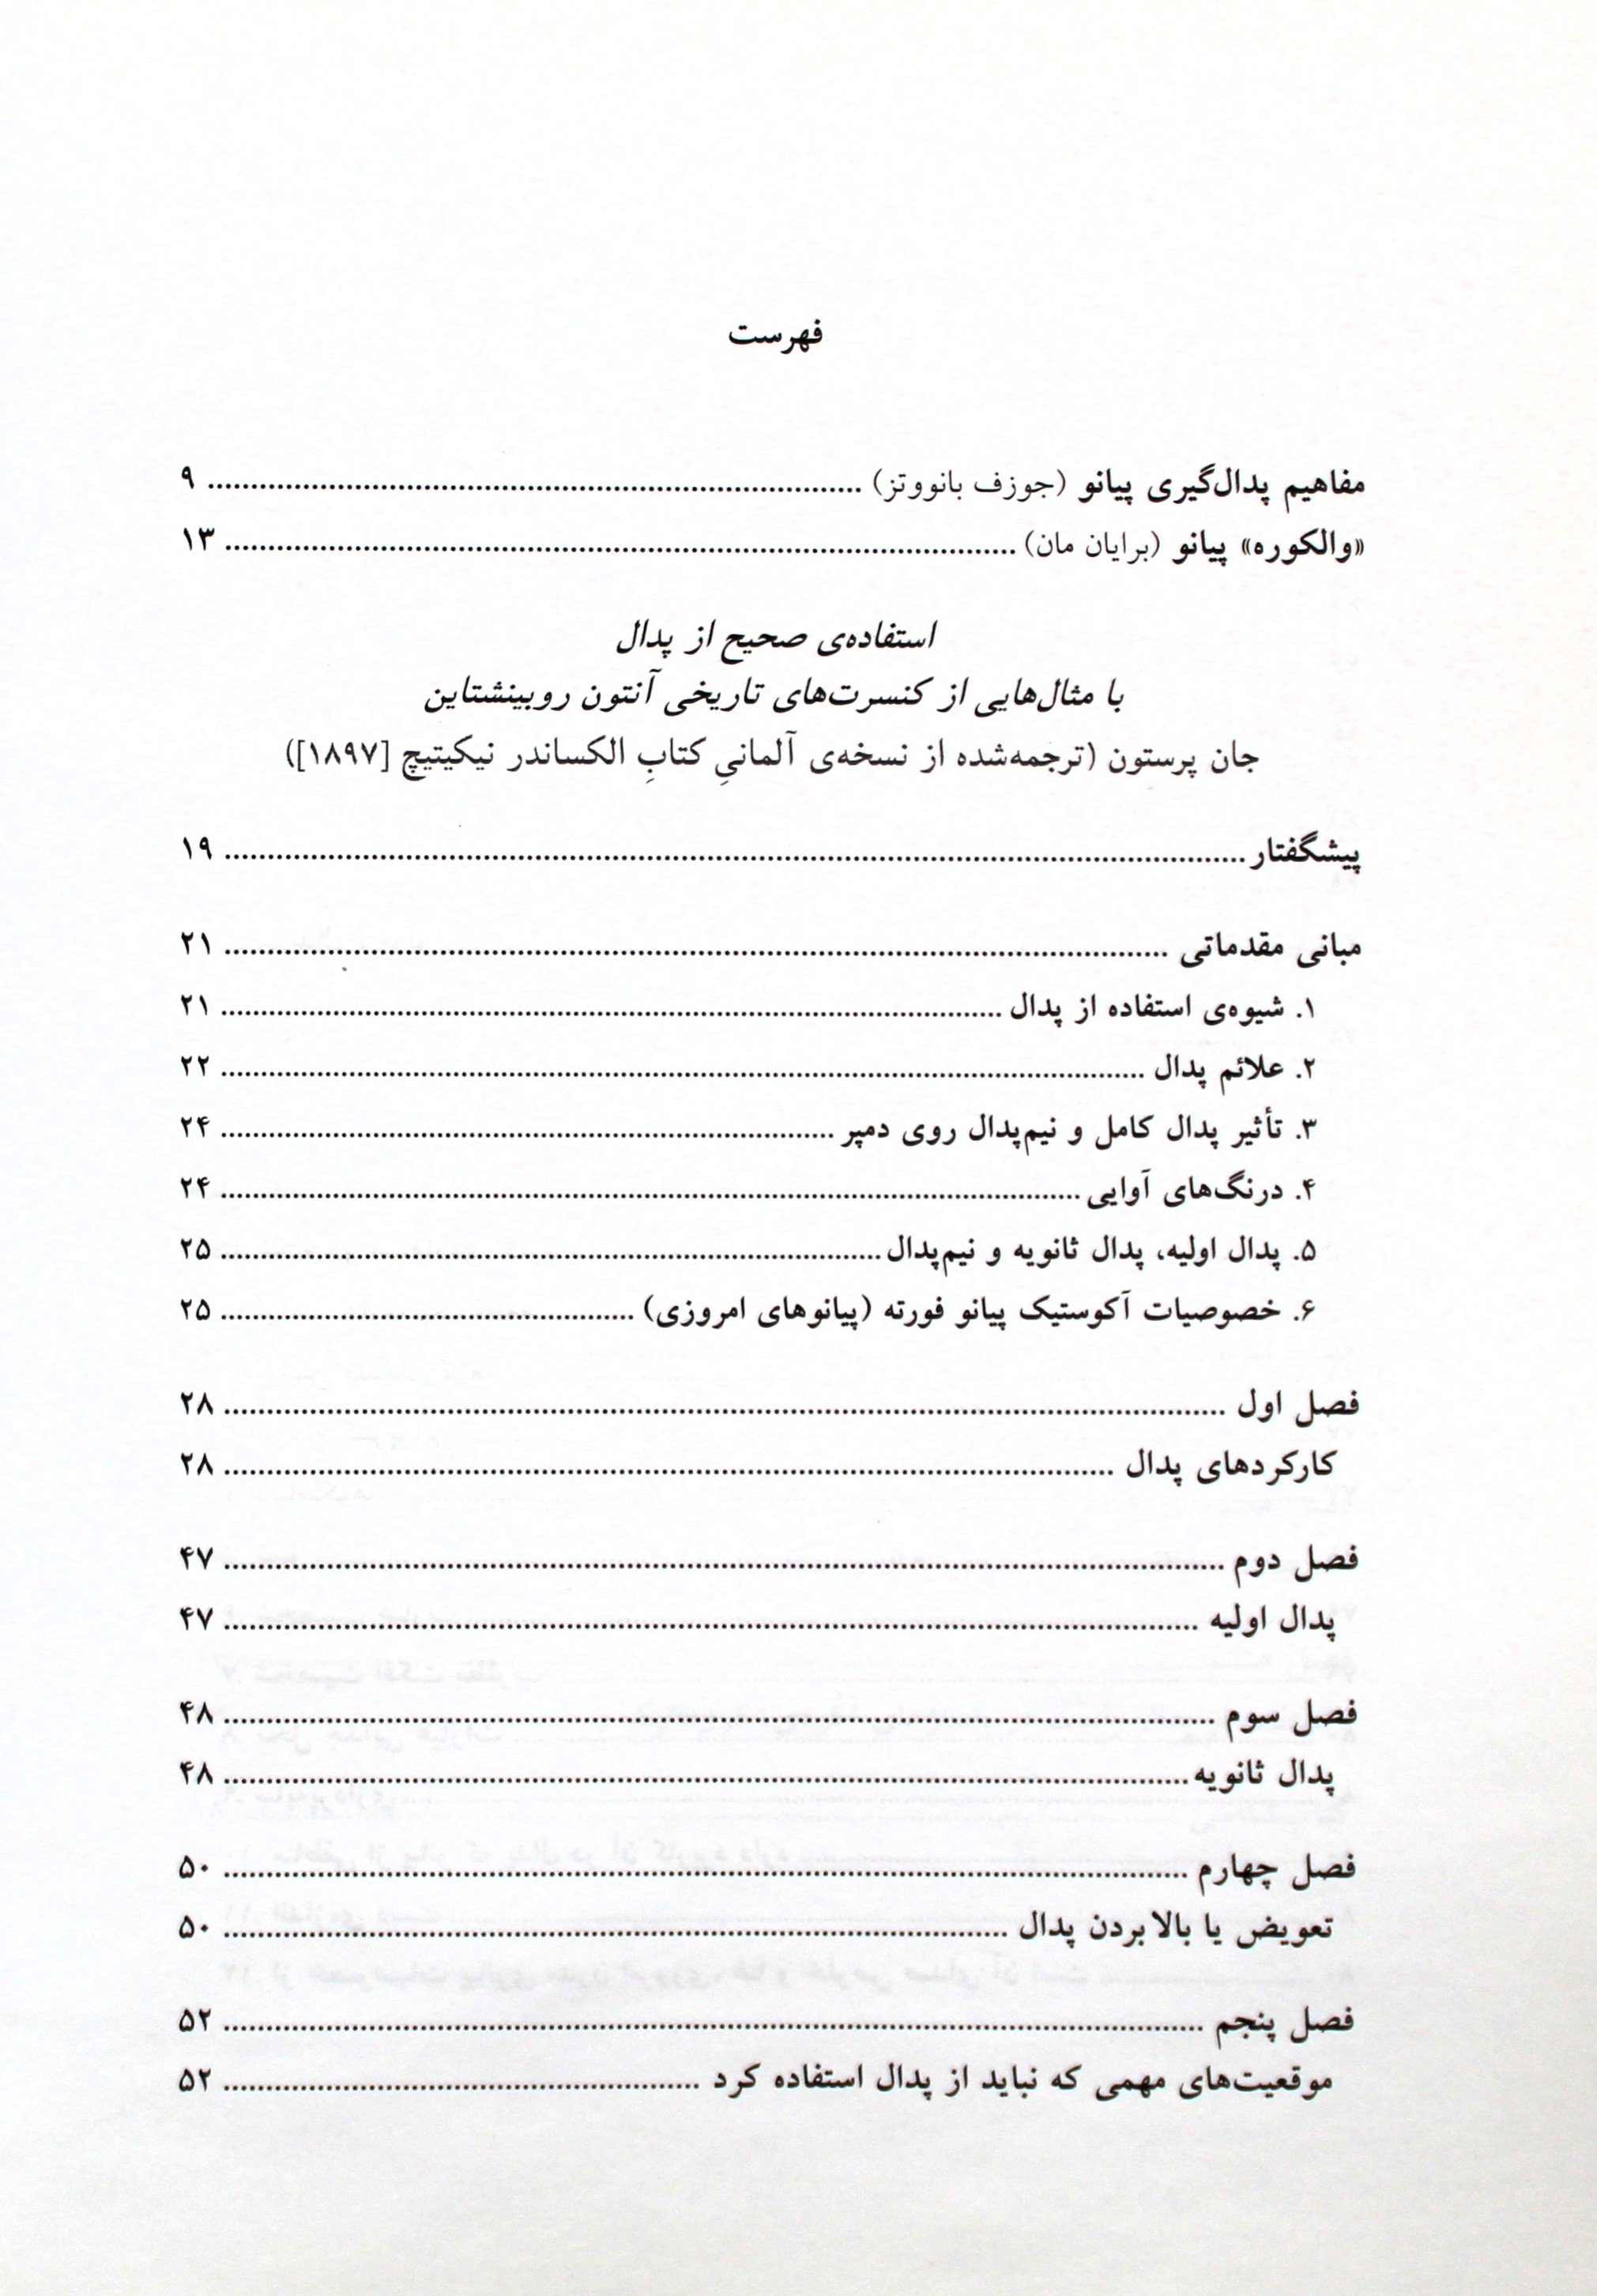 فهرست
مفاهیم پدال‌گیری پیانو (جوزف بانووتز) ........ ۹
«والکوره» پیانو (برایان مان) ........ ۱۳
استفاده‌ی صحیح از پدال
با مثال‌هایی از کنسرت‌های تاریخی آنتون روبینشتاین
جان پرستون (ترجمه‌شده از نسخه‌ی آلمانیِ کتابِ الکساندر نیکیتیچ [۱۸۹۷])
پیشگفتار ........ ۱۹
مبانی مقدماتی ........ ۲۱
۱. شیوه‌ی استفاده از پدال ........ ۲۱
۲. علائم پدال ........ ۲۲
۳. تأثیر پدال کامل و نیم‌پدال روی دمپر ........ ۲۴
۴. درنگ‌های آوایی ........ ۲۴
۵. پدال اولیه، پدال ثانویه و نیم‌پدال ........ ۲۵
۶. خصوصیات آکوستیک پیانو فورته (پیانوهای امروزی) ........ ۲۵
فصل اول ........ ۲۸
کارکردهای پدال ........ ۲۸
فصل دوم ........ ۴۷
پدال اولیه ........ ۴۷
فصل سوم ........ ۴۸
پدال ثانویه ........ ۴۸
فصل چهارم ........ ۵۰
تعویض یا بالا بردن پدال ........ ۵۰
فصل پنجم ........ ۵۲
موقعیت‌های مهمی که نباید از پدال استفاده کرد ........ ۵۲